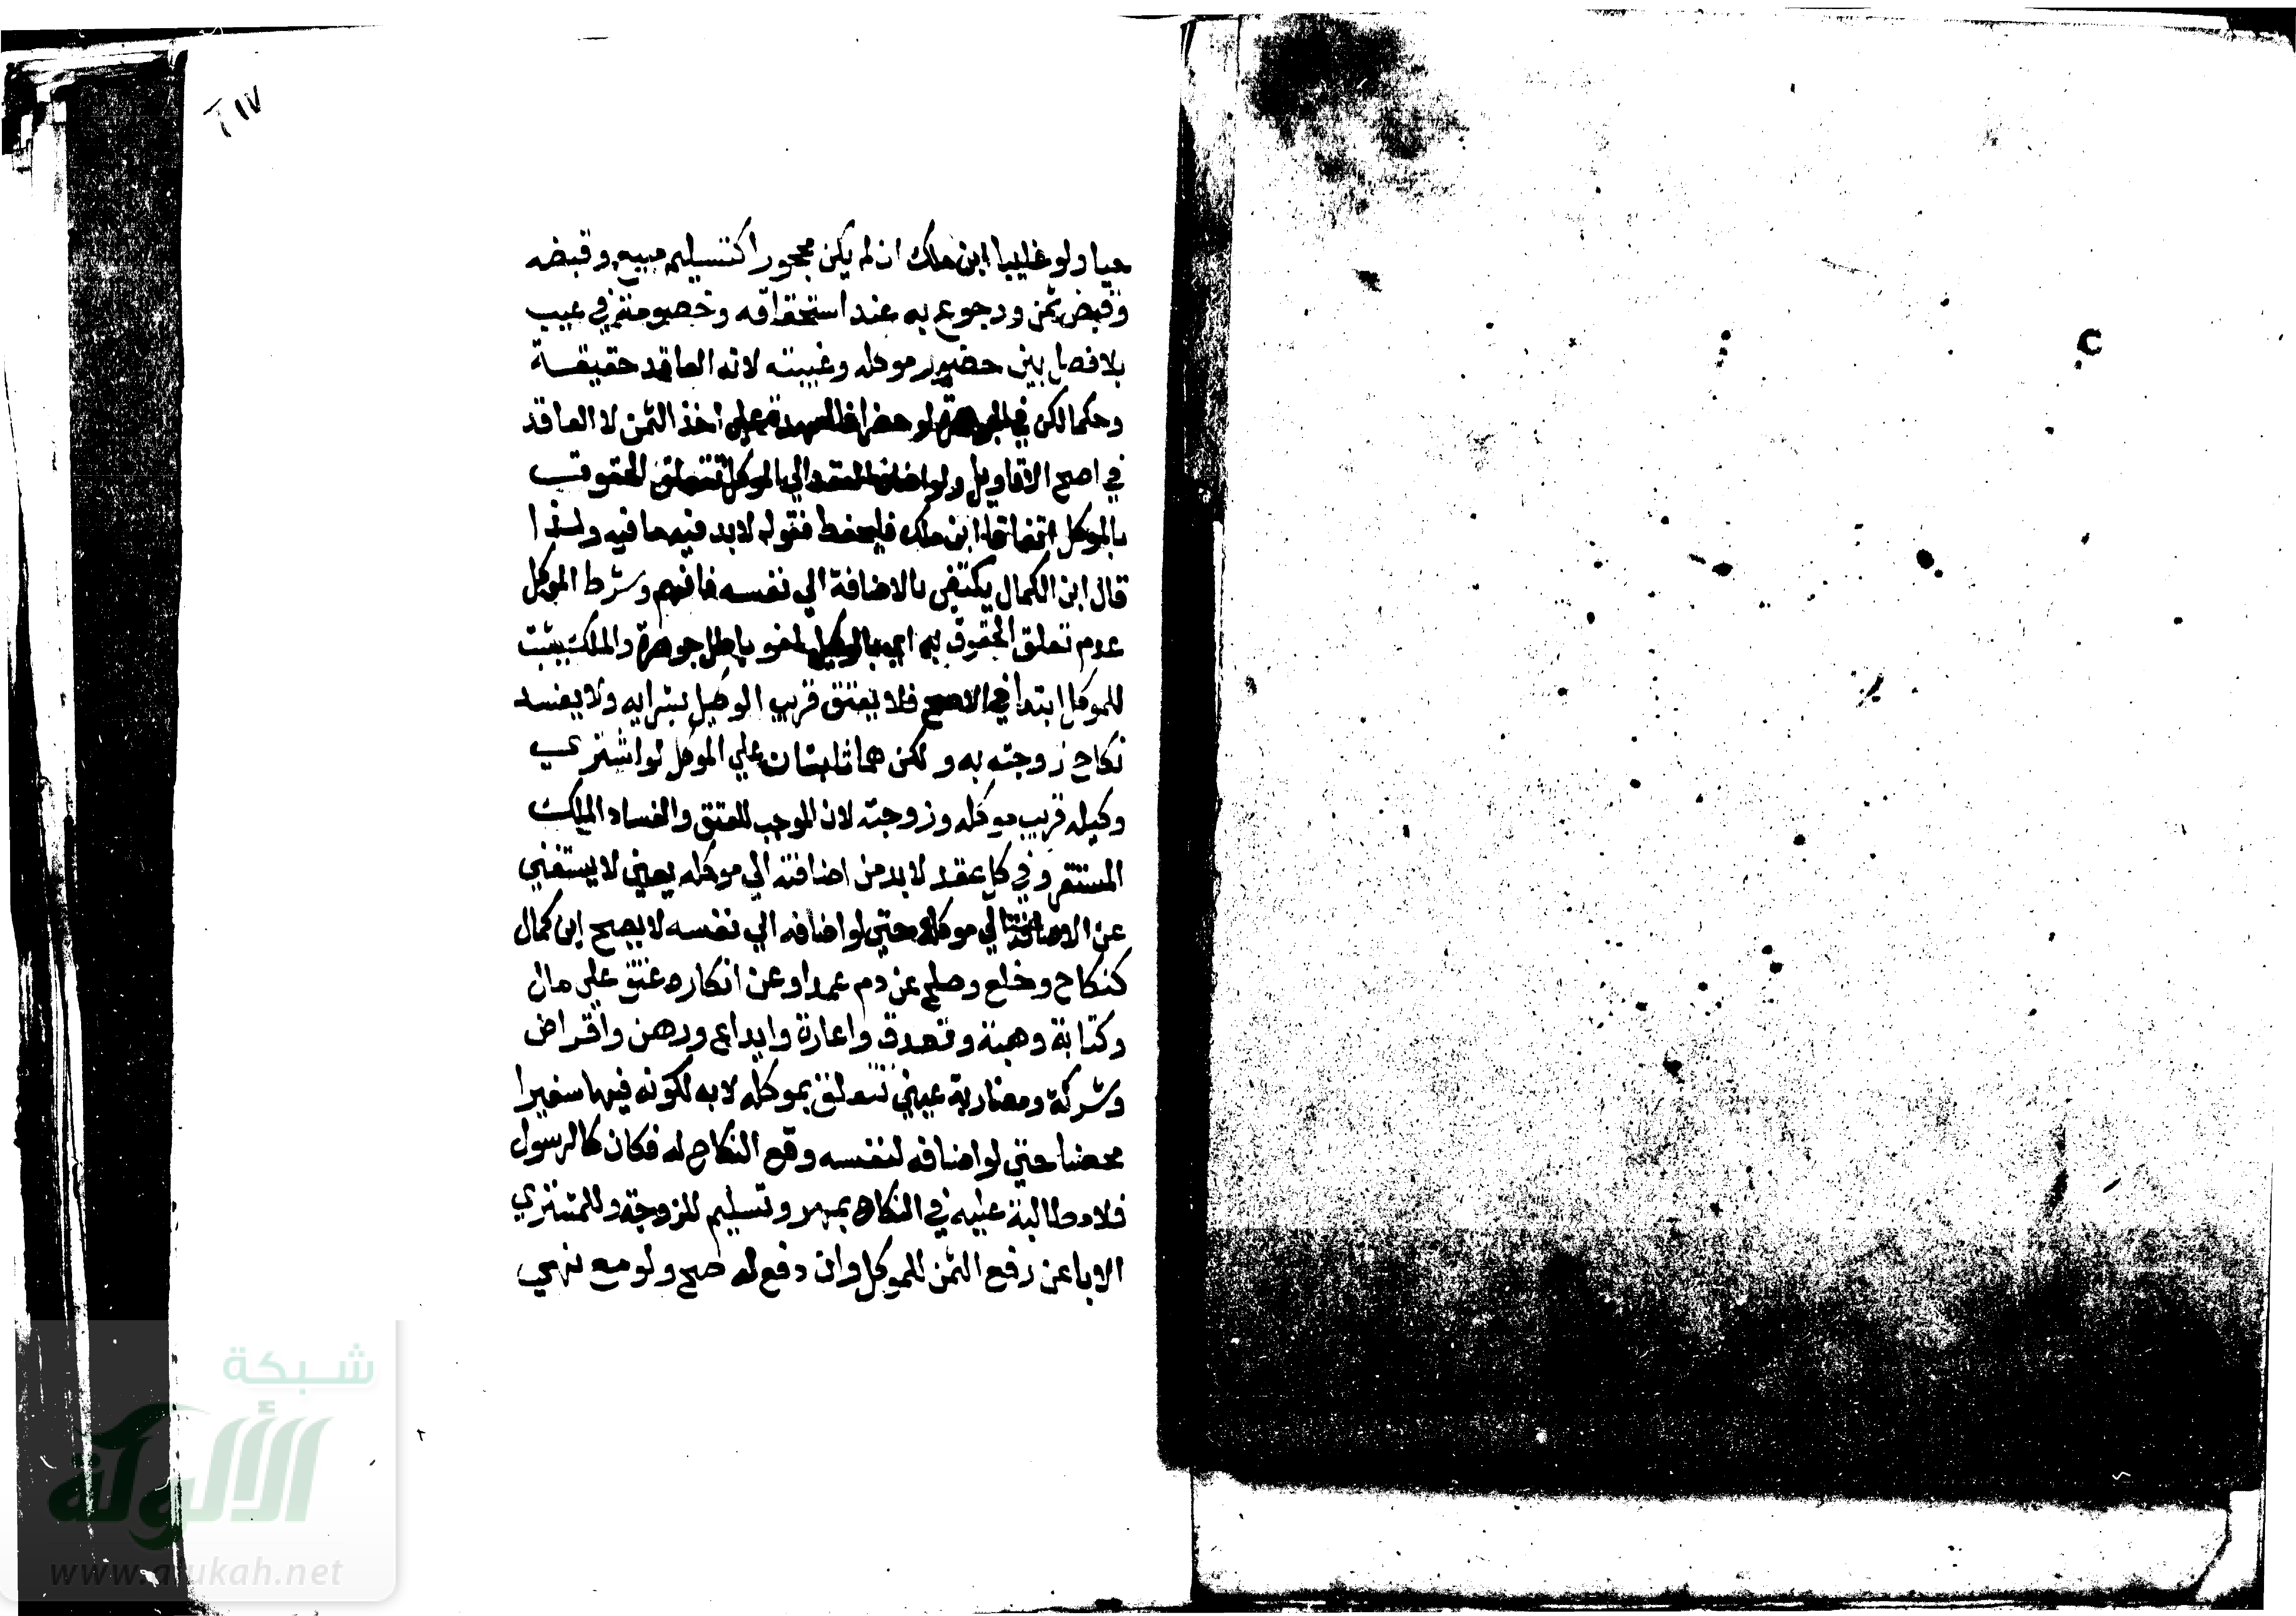 ٢١٧
حيا ولو غايبا ابن ملك ان لم يكن محجورا كتسليم مبيع وقبضه
وقبض ثمن ورجوع به عند استحقاقه وخصومة في عيب
بلا فصل بين حضور موكله وغيبته لانه العاقد حقيقة
وحكما لكن في الجوهرة لو حضرا فالعهدة على اخذ الثمن لا العاقد
في اصح الاقاويل ولو اضاف العقد الي الموكل تتعلق الحقوق
بالموكل اتفاقا ابن ملك فليحفظ فقوله لا بد فيه ما فيه ولذا
قال ابن الكمال يكتفي بالاضافة الي نفسه فافهم وشرط الموكل
عدم تعلق الحقوق به اي بالوكيل لغو باطل جوهرة والملك يثبت
للموكل ابتدا في الاصح فلا يعتق قريب الوكيل بشرايه ولا يفسد
نكاح زوجته به ولكن هما ثابتان علي الموكل لو اشتري
وكيله قريب موكله وزوجته لان الموجب للعتق والفساد الملك
المستقر وفي كل عقد لا بد من اضافته الي موكله يعني لا يستغني
عن الاضافة الي موكله حتي لو اضافه الي نفسه لا يصح ابن كمال
كنكاح وخلع وصلح عن دم عمد او عن انكاره عتق علي مال
وكتابة وهبة وتصدق واعارة وايداع ورهن واقراض
وشركة ومضاربة عيني تتعلق بموكله لا به لكونه فيها سفيرا
محضا حتي لو اضافه لنفسه وقع النكاح له فكان كالرسول
فلا مطالبة عليه في النكاح بمهر وتسليم للزوجة وللمشتري
الابا عن دفع الثمن للموكل وان دفع له صح ولو مع نهي
شبكة
الألوكة
www.alukah.net